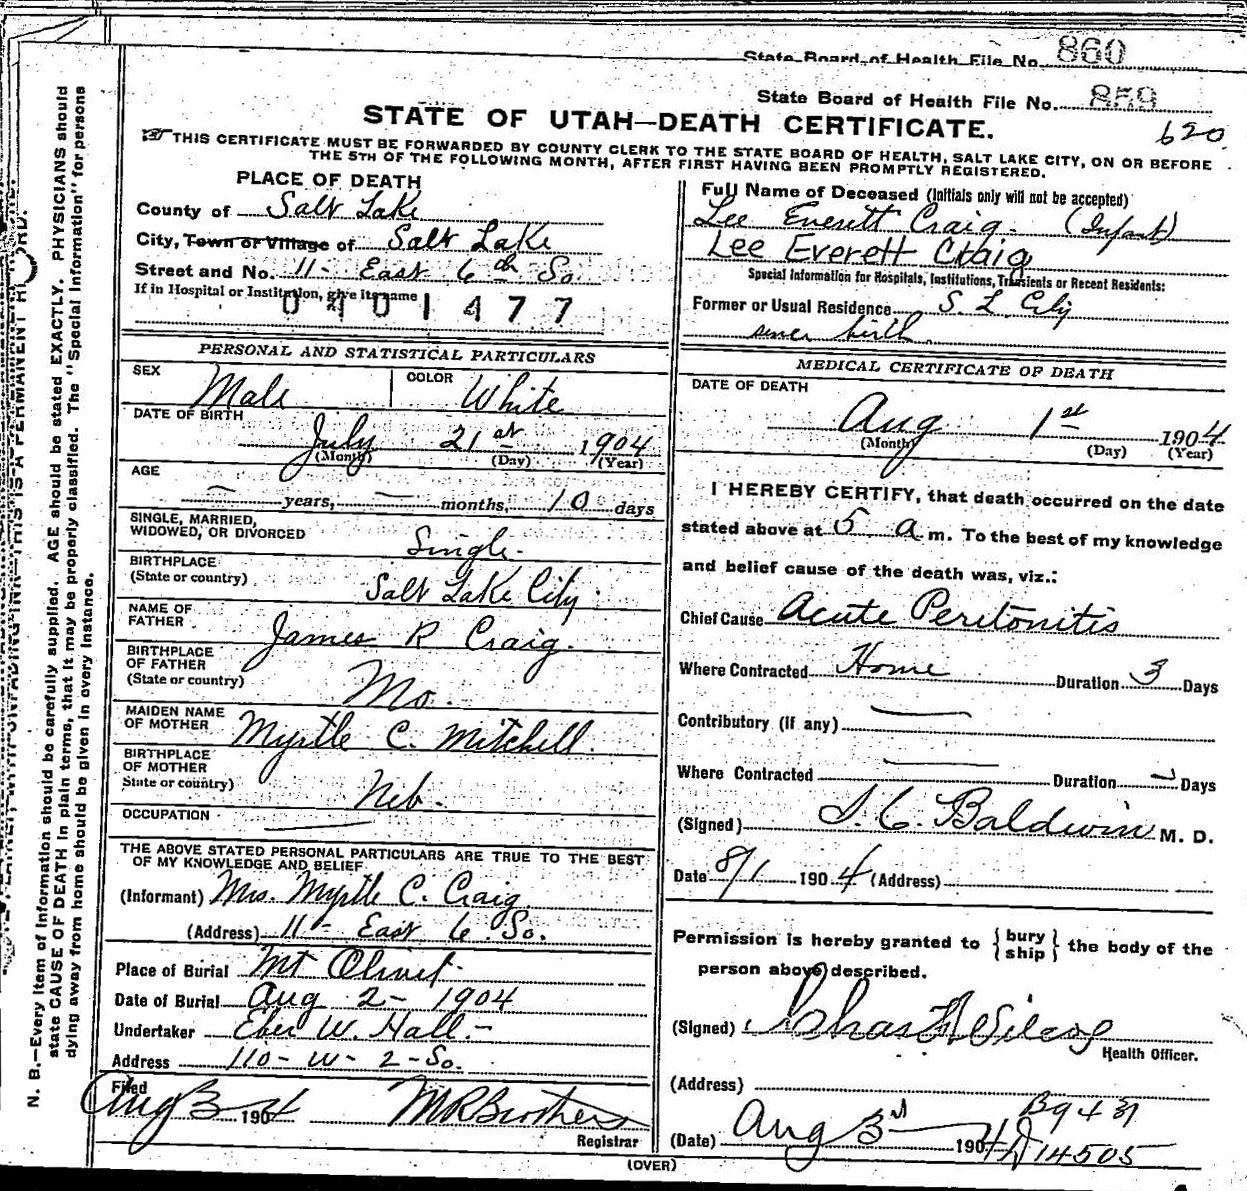 State Board of Health File No. 860
State Board of Health File No. 859
STATE OF UTAH—DEATH CERTIFICATE.
620
THIS CERTIFICATE MUST BE FORWARDED BY COUNTY CLERK TO THE STATE BOARD OF HEALTH, SALT LAKE CITY, ON OR BEFORE
THE 5TH OF THE FOLLOWING MONTH, AFTER FIRST HAVING BEEN PROMPTLY REGISTERED.
PLACE OF DEATH
County of Salt Lake
City, Town or Village of Salt Lake
Street and No. 11- East 6th So.
If in Hospital or Institution, give its name
0401477
PERSONAL AND STATISTICAL PARTICULARS
SEX Male COLOR White
DATE OF BIRTH
July 21st 1904
(Month) (Day) (Year)
AGE
— years, — months, 10 days
SINGLE, MARRIED,
WIDOWED, OR DIVORCED Single
BIRTHPLACE
(State or country) Salt Lake City
NAME OF
FATHER James R Craig
BIRTHPLACE
OF FATHER
(State or country) Mo.
MAIDEN NAME
OF MOTHER Myrtle C. Mitchell
BIRTHPLACE
OF MOTHER
State or country) Neb.
OCCUPATION —
THE ABOVE STATED PERSONAL PARTICULARS ARE TRUE TO THE BEST
OF MY KNOWLEDGE AND BELIEF
(Informant) Mrs. Myrtle C. Craig
(Address) 11- East 6. So.
Place of Burial Mt Olivet
Date of Burial Aug 2- 1904
Undertaker Eber W. Hall-
Address 110-W-2-So.
Filed
Aug 3 1904 M R Brothers
Registrar
(OVER)
Full Name of Deceased (Initials only will not be accepted)
Lee Everett Craig- (Infant)
Lee Everett Craig
Special Information for Hospitals, Institutions, Transients or Recent Residents:
Former or Usual Residence S. L City
birth
MEDICAL CERTIFICATE OF DEATH
DATE OF DEATH
Aug 1st 1904
(Month) (Day) (Year)
I HEREBY CERTIFY, that death occurred on the date
stated above at 5 a m. To the best of my knowledge
and belief cause of the death was, viz.:
Chief Cause Acute Peritonitis
Where Contracted Home Duration 3 Days
Contributory (if any) —
Where Contracted — Duration — Days
(Signed) Baldwin M. D.
Date 8/1 1904 (Address)
Permission is hereby granted to {bury
ship} the body of the
person above described.
(Signed) Chas
Health Officer.
(Address)
B9431
(Date) Aug 3rd 1904
14505
N. B.—Every item of information should be carefully supplied. AGE should be stated EXACTLY. PHYSICIANS should
state CAUSE OF DEATH in plain terms, that it may be properly classified. The "Special Information" for persons
dying away from home should be given in every instance.